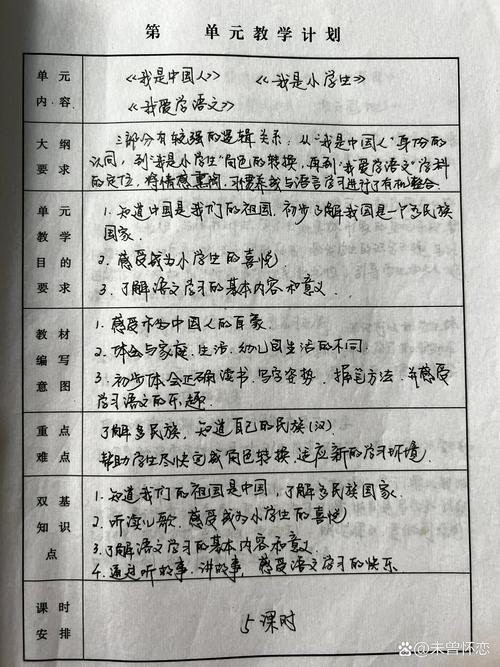 第 单元教学计划
单元内容
《我是中国人》 《我是小学生》
《我爱学语文》
大纲要求
三部分有较强的逻辑关系：从“我是中国人”身份的
认同，到“我是小学生”角色的转换，再到“我爱学语文”学科
的定位，将情感熏陶、习惯养成与语言学习进行了有机整合。
单元教学目的要求
1. 知道中国是我们的祖国，初步了解我国是一个多民族
国家。
2. 感受成为小学生的喜悦
3. 了解语文学习的基本内容和意义．
教材编写意图
1. 感受作为中国人的自豪
2. 体会与家庭．生活．幼儿园生活的不同．
3. 初步体会正确读书、写字姿势、执笔方法，并感受
学习语文的乐趣．
重点难点
了解多民族，知道自己的民族（汉）
帮助学生尽快完成角色转换，适应新的学习环境．
双基知识点
1. 知道我们的祖国是中国，了解多民族国家．
2. 听读儿歌．感受成为小学生的喜悦
3. 了解语文学习的基本内容和意义．
4. 通过听故事．讲故事，感受语文学习的快乐
课时安排
5课时
@未曾怀恋